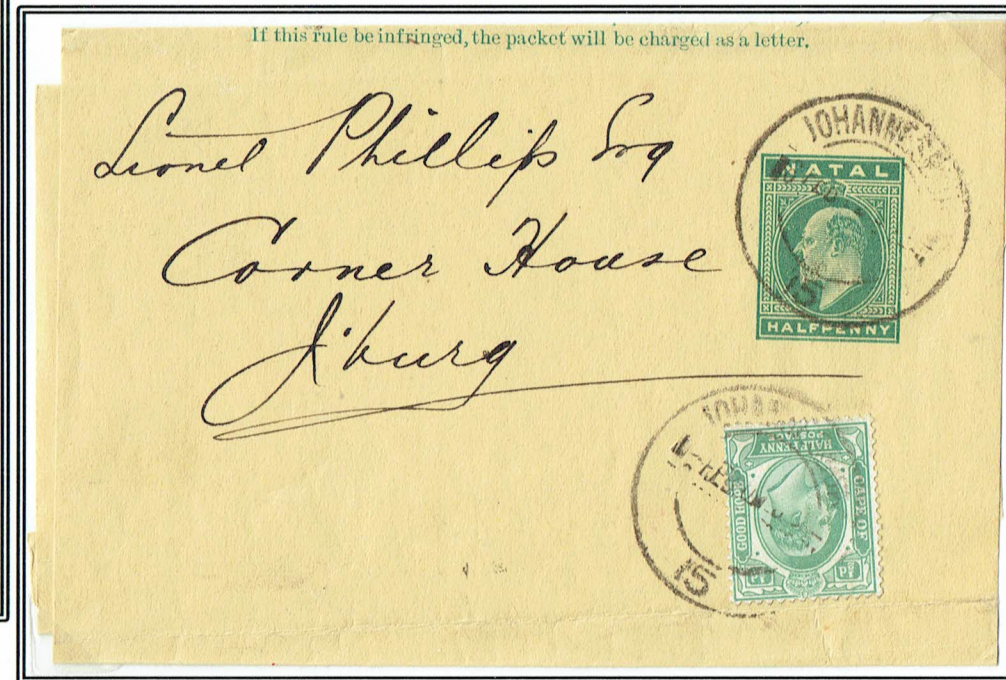 If this rule be infringed, the packet will be charged as a letter.
Lionel Phillips Esq
Corner House
J'burg
JOHANNESBURG
15
NATAL
HALFPENNY
15
HALFPENNY
POSTAGE
GOOD HOPE
CAPE OF
½D
½D